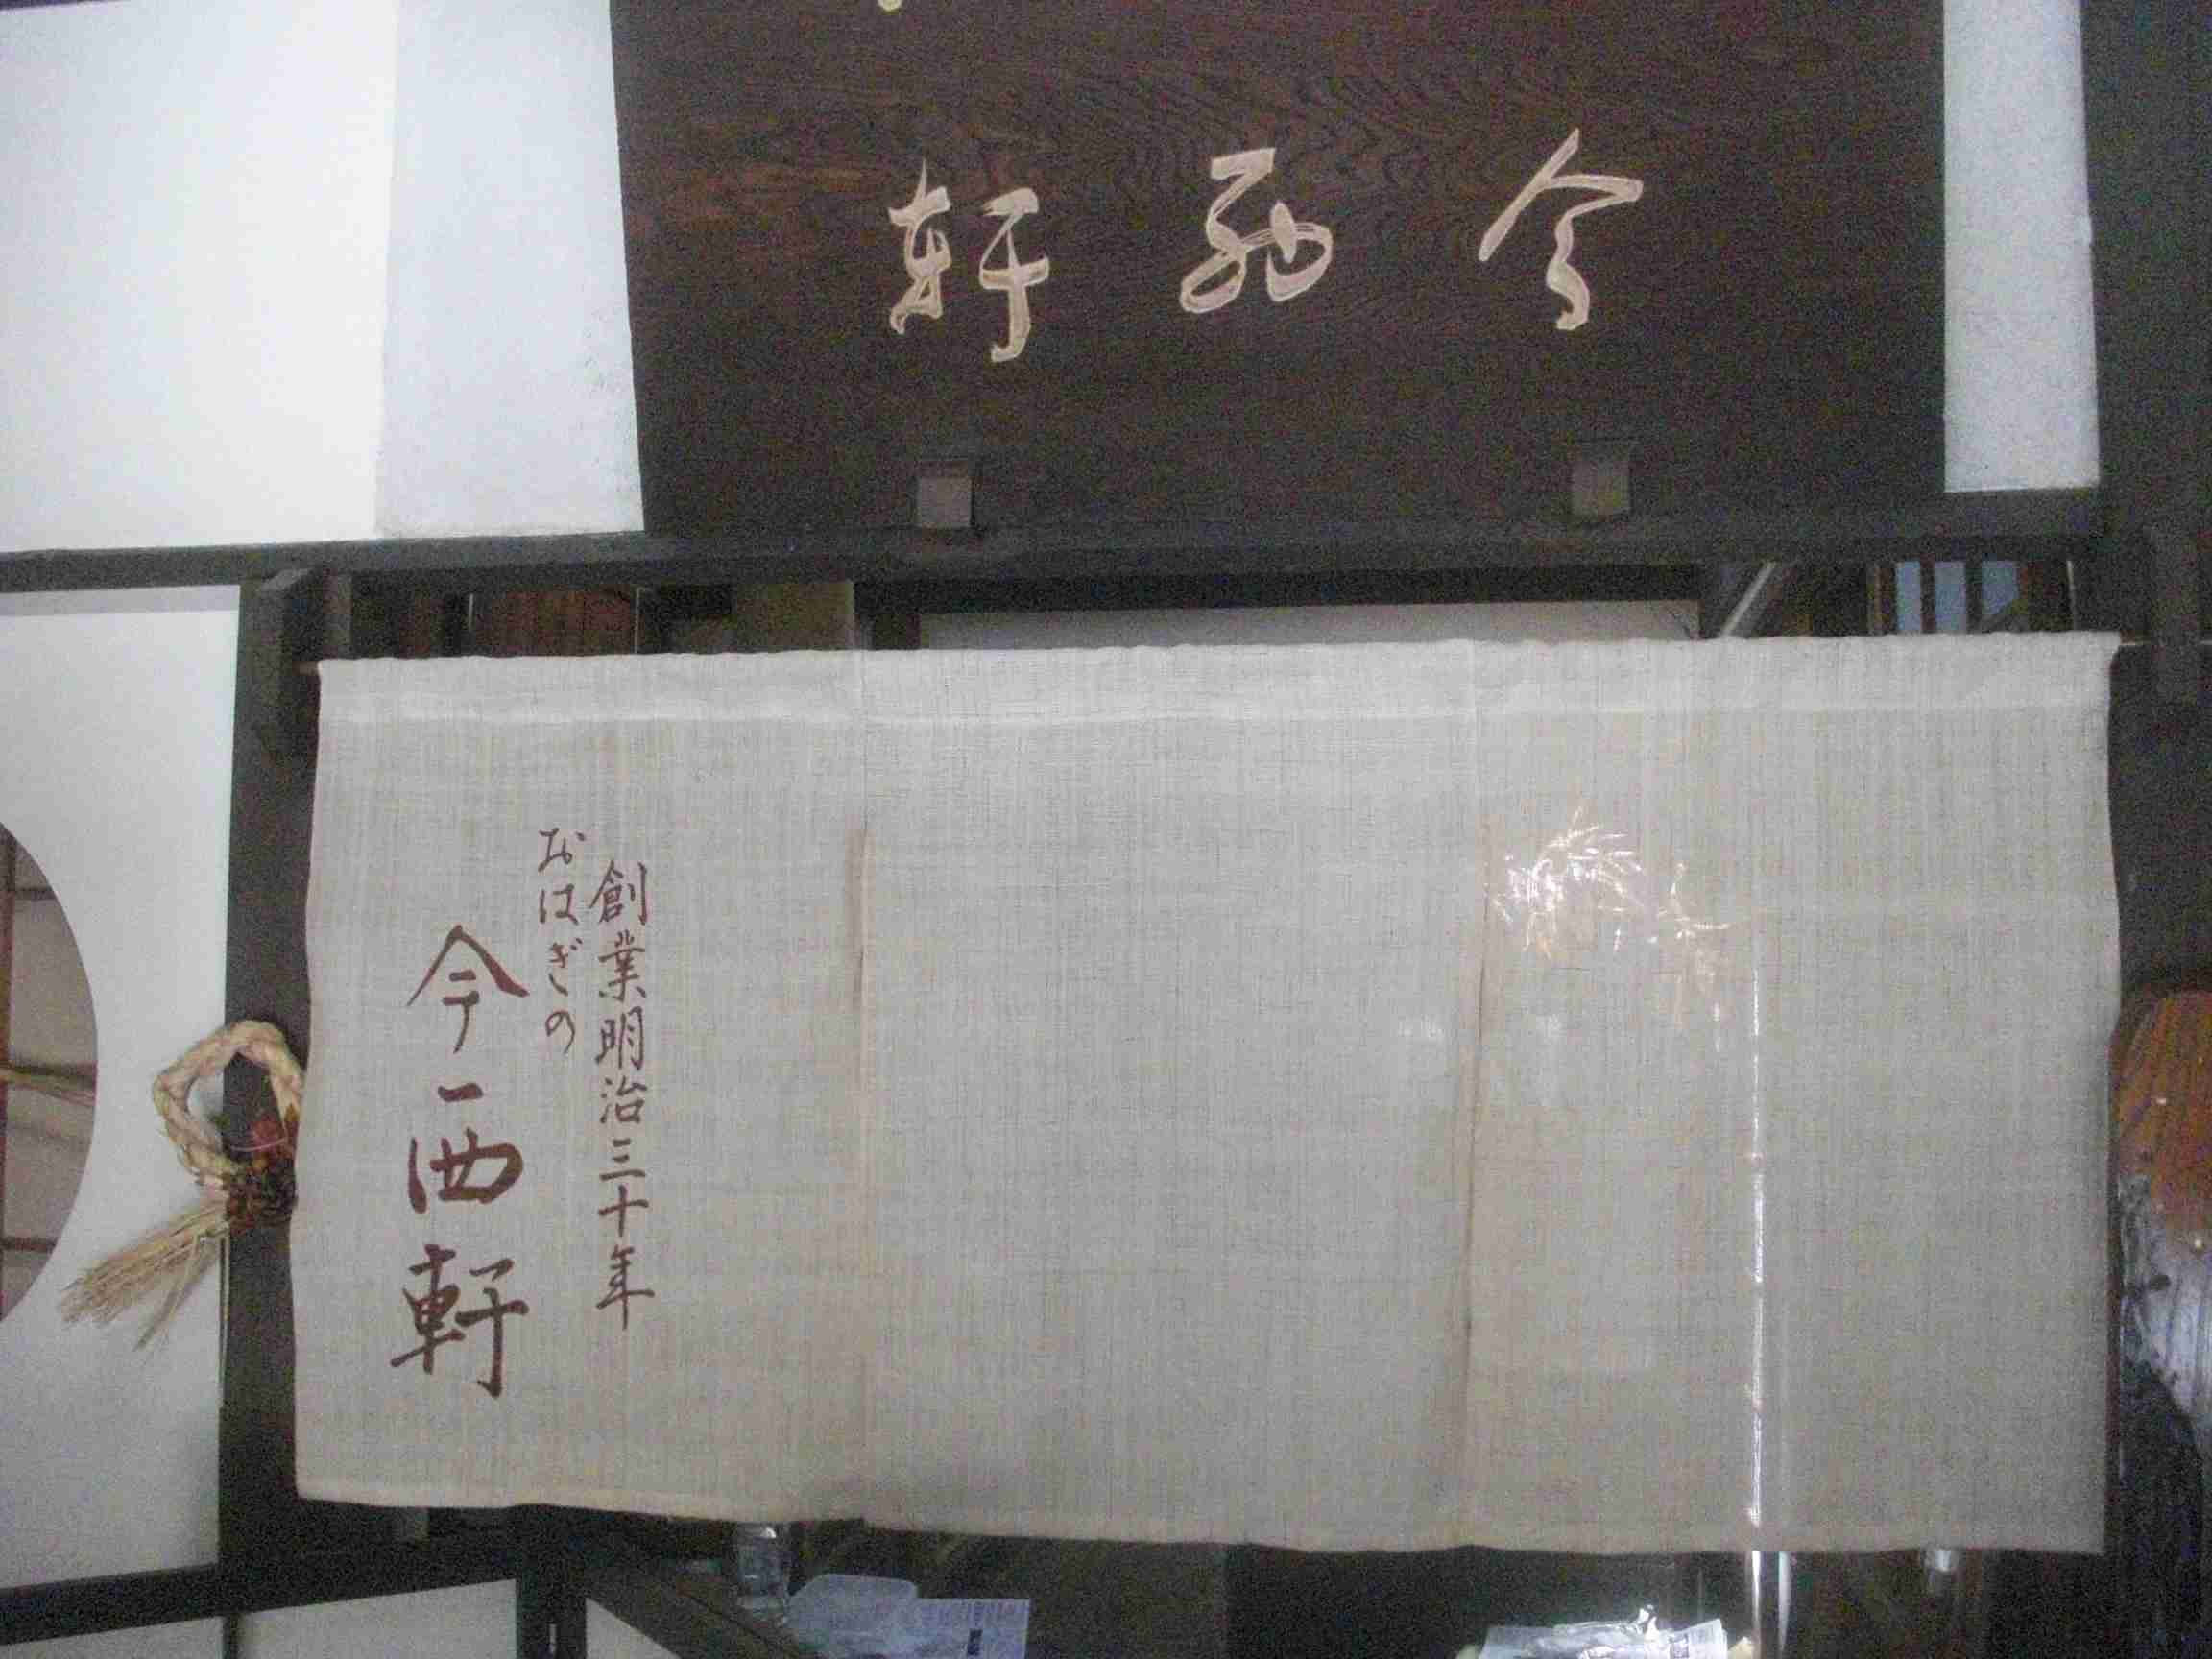 今西軒
創業明治三十年
おはぎの
今西軒